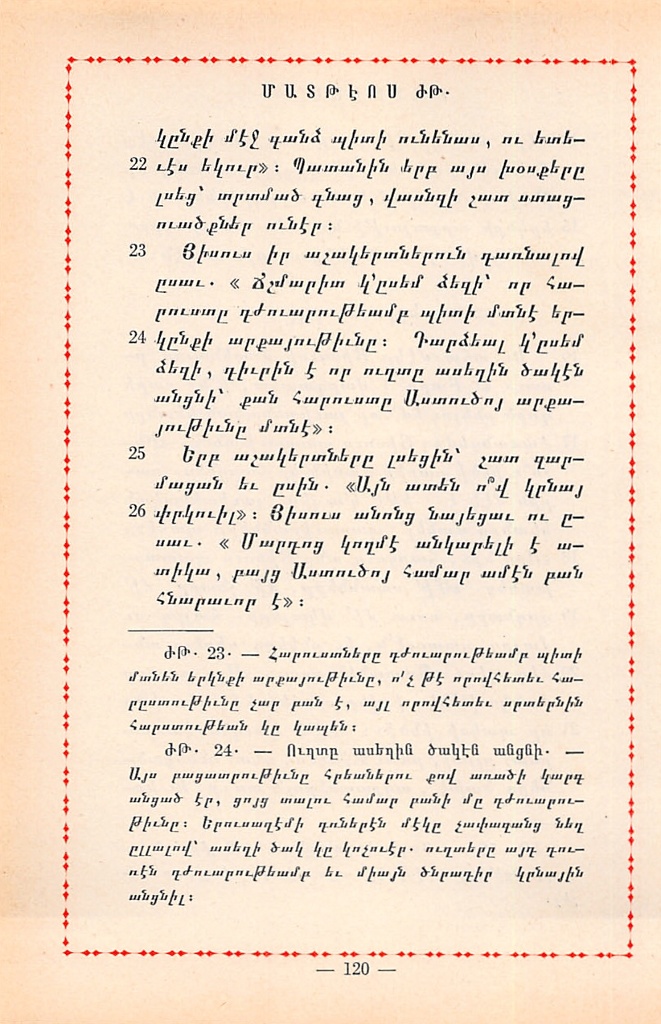 ՄԱՏԹԷՈՍ ԺԹ.
կընքի մէջ գանձ պիտի ունենաս, ու ետե-
22 ւէս եկուր»: Պատանին երբ այս խօսքերը
լսեց՝ տրտմած գնաց, վասնզի շատ ստաց-
ուածքներ ունէր:
23 Յիսուս իր աշակերտներուն դառնալով
ըսաւ. « Ճշմարիտ կ՚ըսեմ ձեզի՝ որ հա-
րուստը դժուարութեամբ պիտի մտնէ եր-
24 կընքի արքայութիւնը: Դարձեալ կ՚ըսեմ
ձեզի, դիւրին է որ ուղտը ասեղին ծակէն
անցնի՝ քան հարուստը Աստուծոյ արքա-
յութիւնը մտնէ»:
25 Երբ աշակերտները լսեցին՝ շատ զար-
մացան եւ ըսին. «Այն ատեն ո՞վ կրնայ
26 փրկուիլ»: Յիսուս անոնց նայեցաւ ու ը-
սաւ. « Մարդոց կողմէ անկարելի է ա-
տիկա, բայց Աստուծոյ համար ամէն բան
հնարաւոր է»:
ԺԹ. 23. — Հարուստները դժուարութեամբ պիտի
մտնեն երկնքի արքայութիւնը, ո՛չ թէ որովհետեւ հա-
րըստութիւնը չար բան է, այլ որովհետեւ սրտերնին
հարստութեան կը կապեն:
ԺԹ. 24. — Ուղտը ասեղին ծակէն անցնի. —
Այս բացատրութիւնը հրեաներու քով առածի կարգ
անցած էր, ցոյց տալու համար բանի մը դժուարու-
թիւնը: Երուսաղէմի դոներէն մէկը չափազանց նեղ
ըլլալով՝ ասեղի ծակ կը կոչուէր. ուղտերը այդ դու-
ռէն դժուարութեամբ եւ միայն ծնրադիր կրնային
անցնիլ:
— 120 —